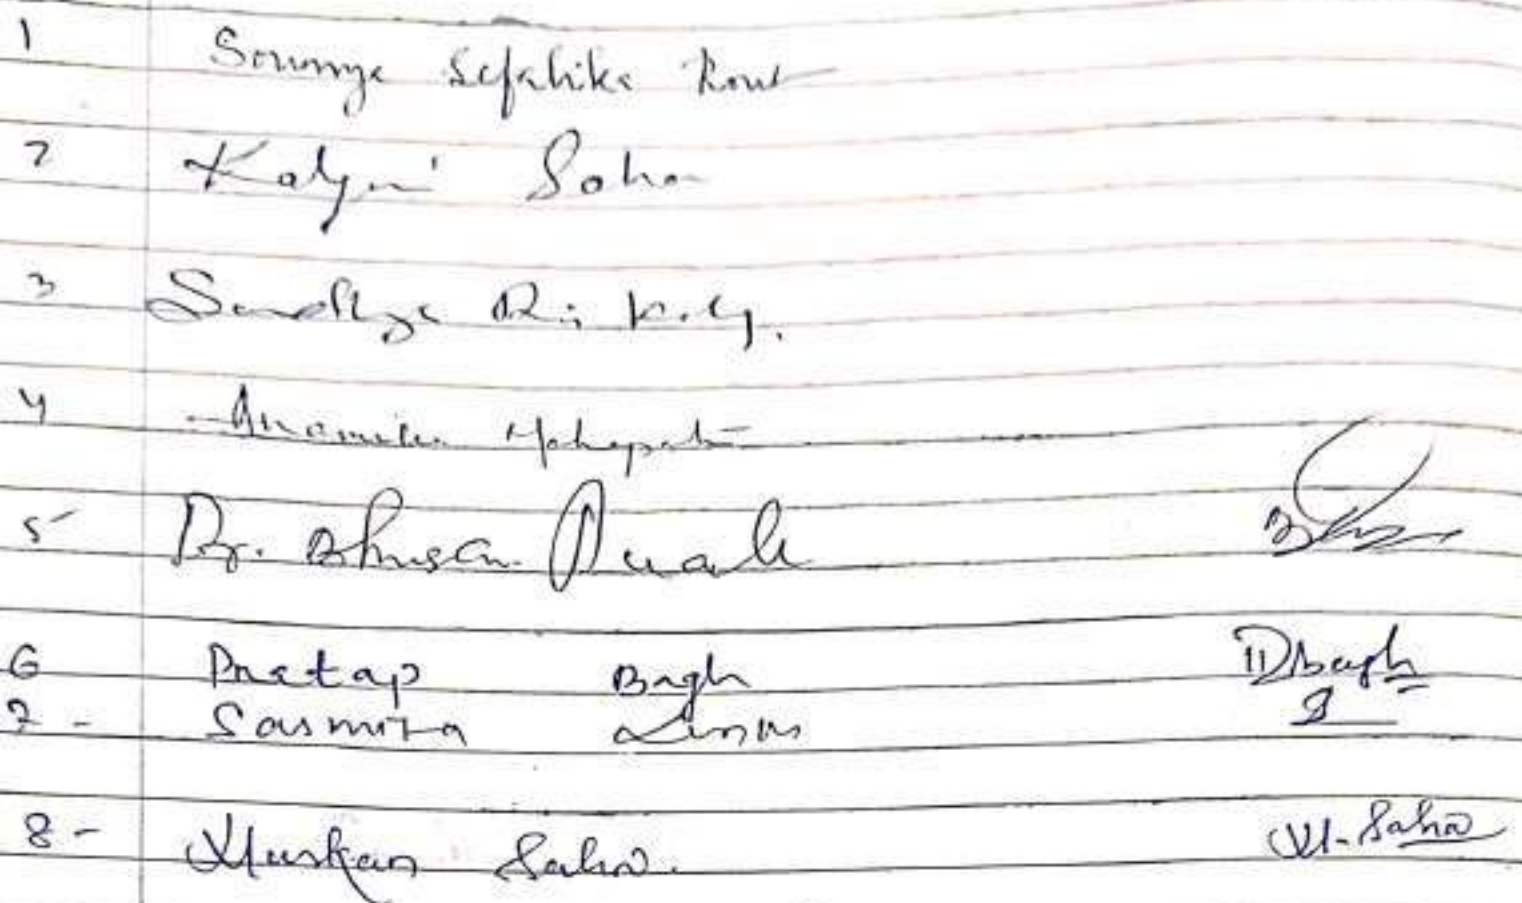 1 Soumya Sefalika Rout
2 Kalyani Saha
3 Sandhya Rani
4 Anamika Mahapatra
5 Dr. Bhusan
6 Pratap Bagh DBagh
7 - Sasmita
8 - Muskan Saha. M. Saha